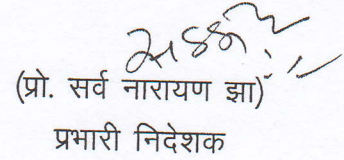 (प्रो. सर्व नारायण झा)
प्रभारी निदेशक